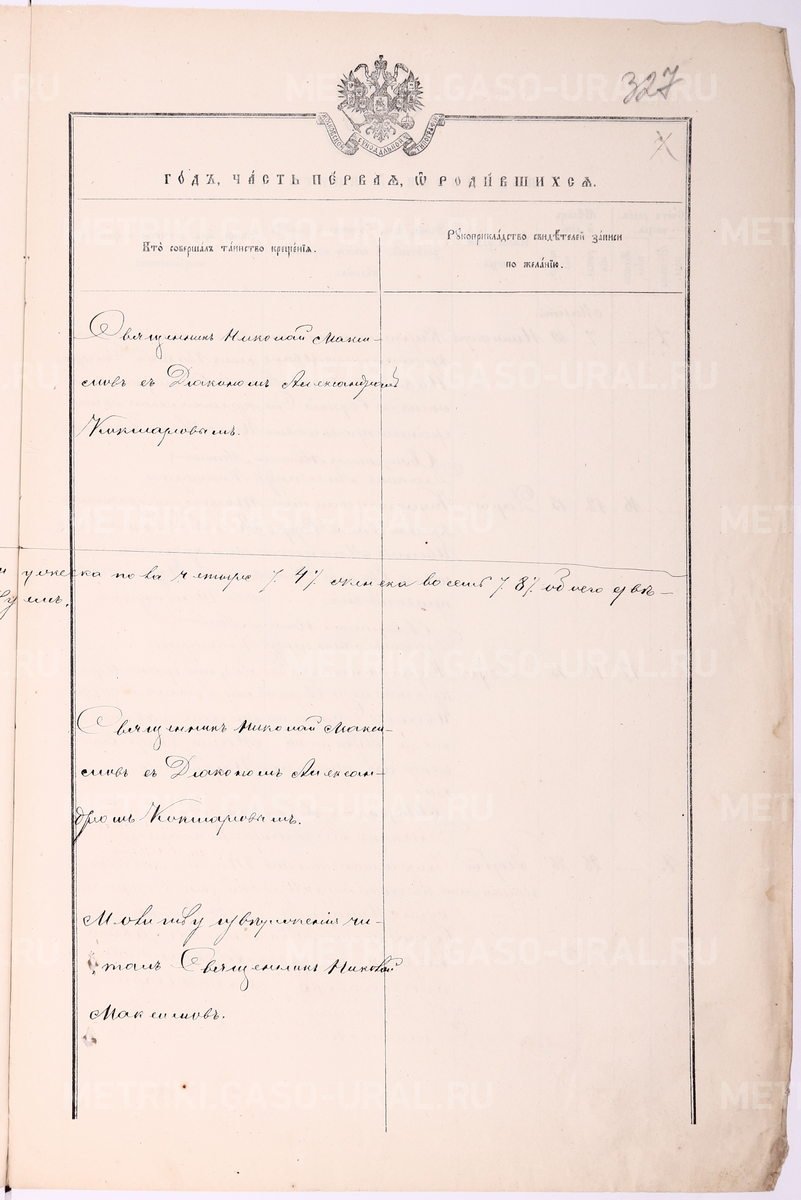 327
МОСКОВСКОЙ СѴНОДАЛЬНОЙ ТИПОГРАФІИ
ГО́ДЪ, ЧА́СТЬ ПЕ́РВАѦ, Ѡ҆ РОДИ́ВШИХСѦ.
Кто̀ соверша́лъ та́инство креще́нїѧ.
Рꙋкоприкла́дство свидѣ́телей за́писи
по жела́нїю.
Священникъ Николай Макси-
мовъ съ Діакономъ Александромъ
Кокшаровымъ.
мужеска пола четыре /. 4 /. женска восемь /. 8 /. обоего двѣ-
Священникъ Николай Макси-
мовъ съ Діакономъ Алексан-
дромъ Кокшаровымъ.
Молитву
читалъ Священникъ Николай
Максимовъ.
METRIKI.GASO-URAL.RU